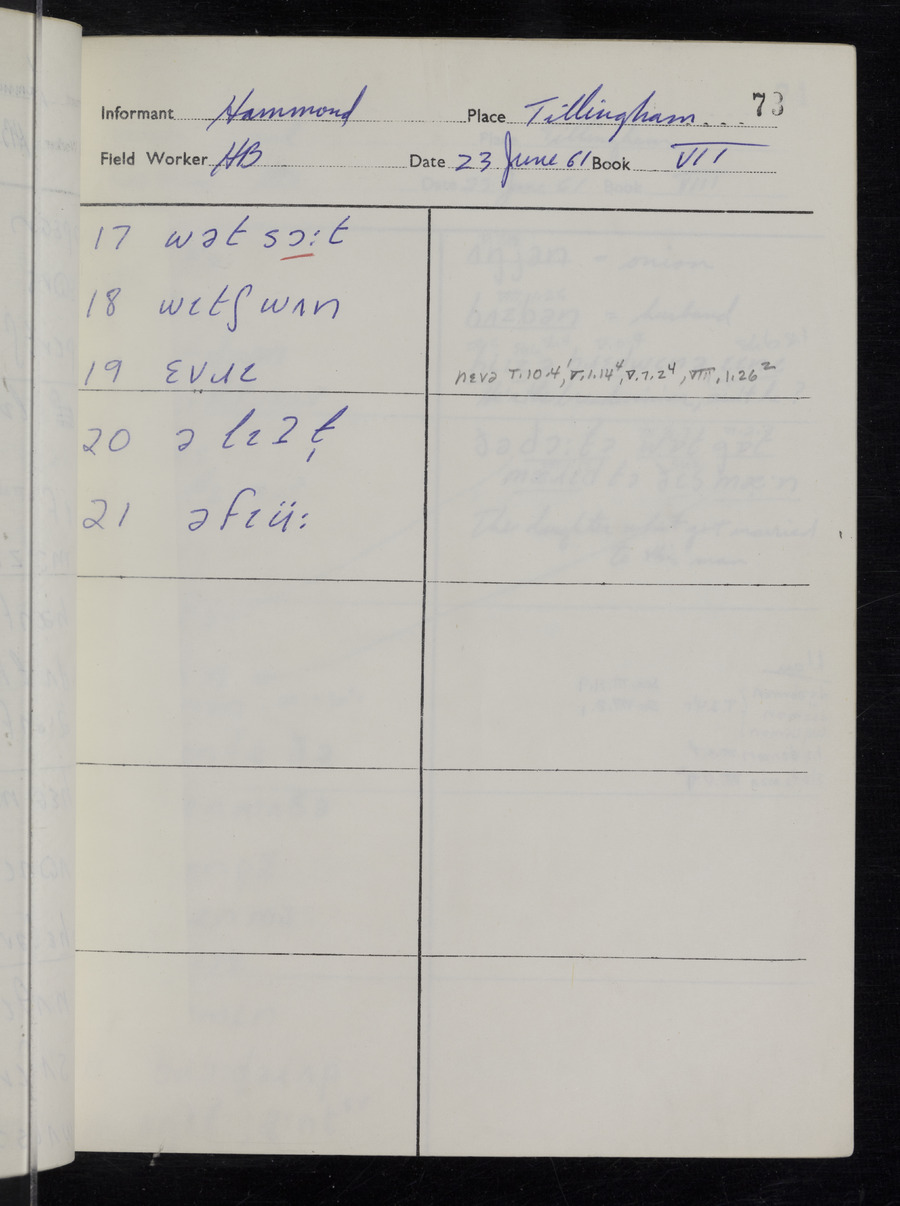 73
Informant Hammond Place Tillingham
Field Worker HB Date 23 June 61 Book VII
17 wət sɔ:t
18 wɪtʃ wʌn
19 ɛvɹɪ nɛvə V.10.4¹, V.1.14⁴, V.7.2⁴, VIII.1.26²
20 ə
21 əfɪü: